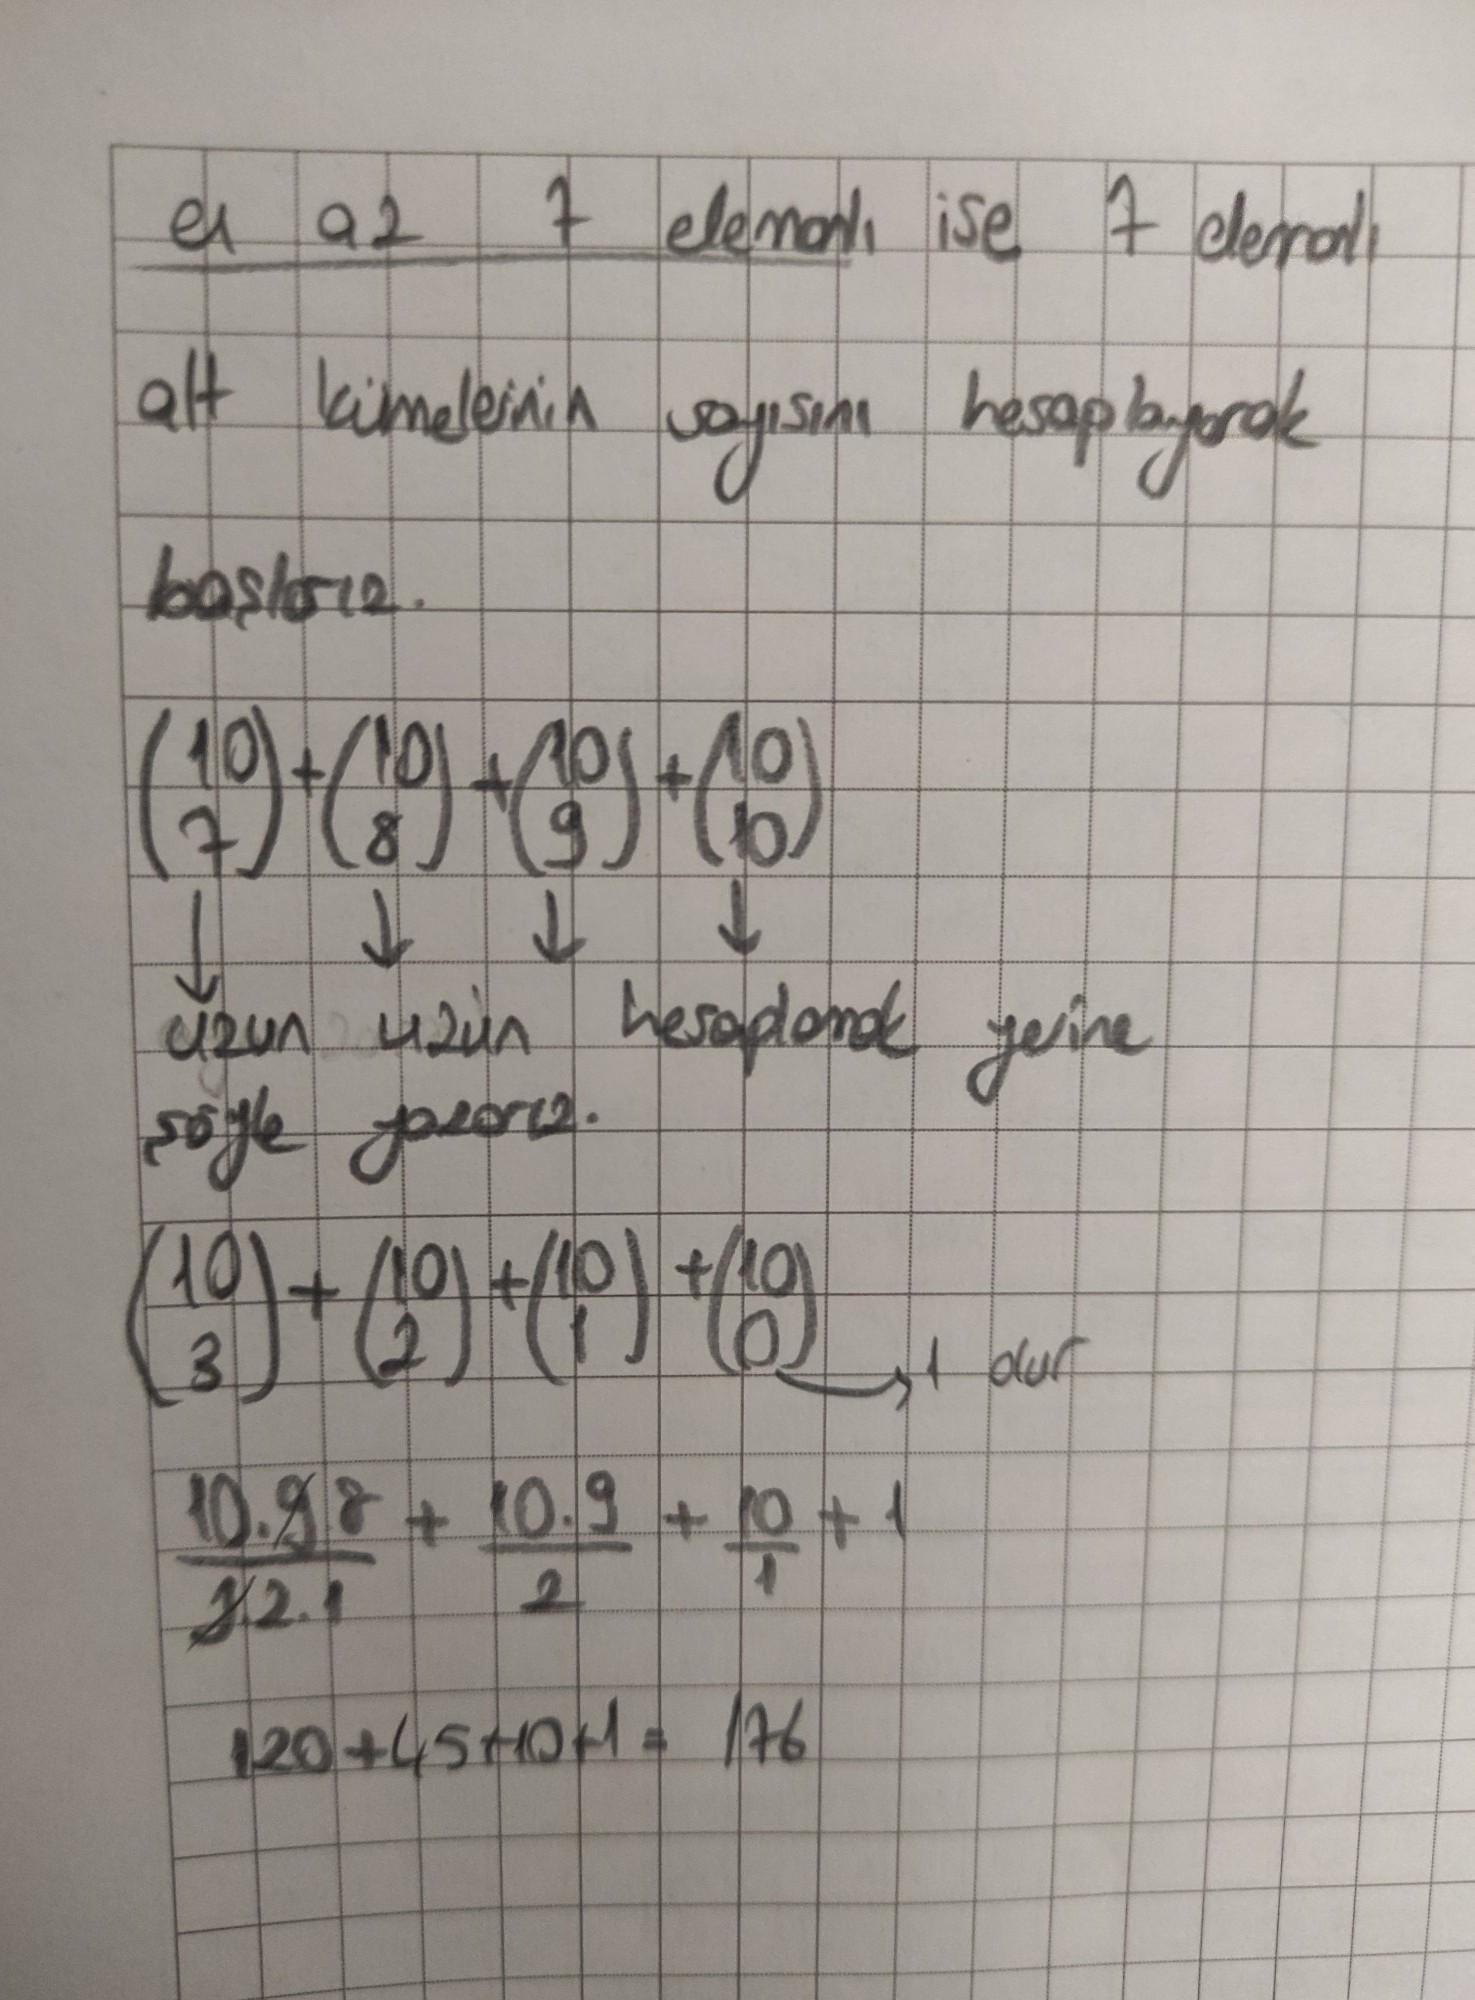 en az 7 elemanlı ise 7 elemanlı
alt kümelerinin sayısını hesaplayarak
başlarız.
(10 7) + (10 8) + (10 9) + (10 10)
↓ ↓ ↓ ↓
uzun uzun hesaplamak yerine
şöyle yazarız.
(10 3) + (10 2) + (10 1) + (10 0) → 1 olur
10.9.8/3.2.1 + 10.9/2 + 10/1 + 1
120+45+10+1 = 176